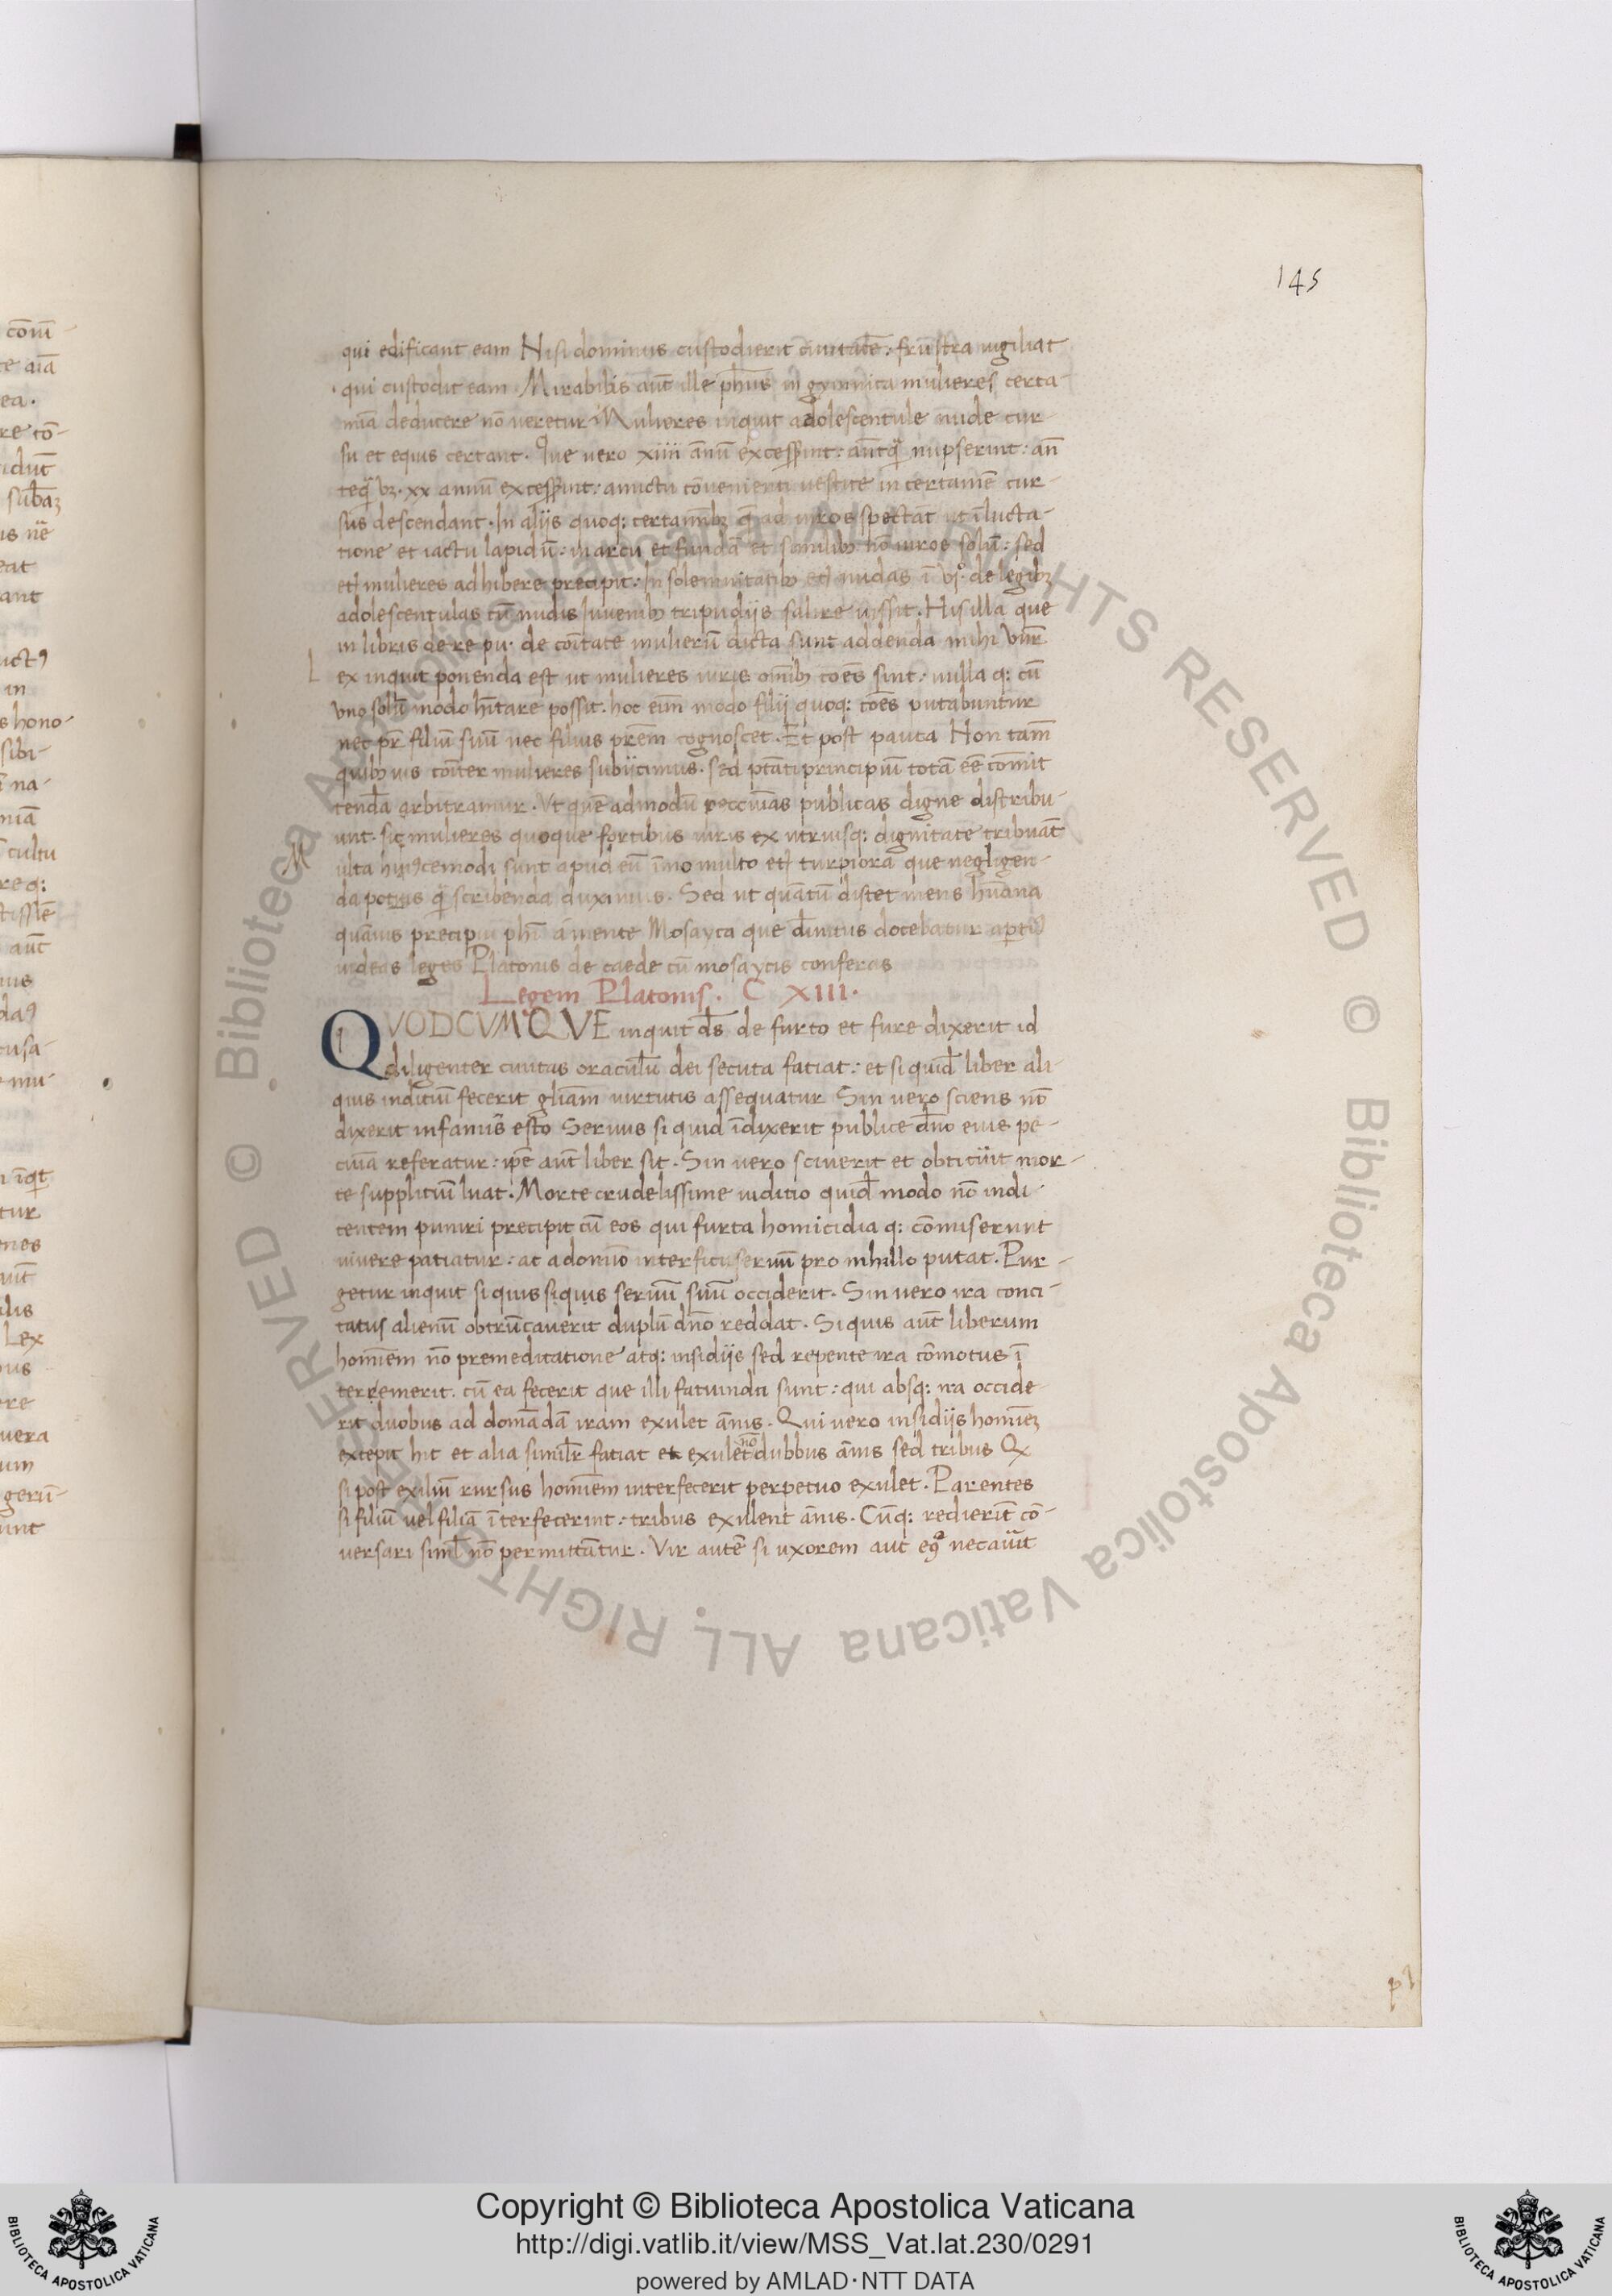 145
qui edificant eam Nisi dominus custodierit ciuitatē: frustra uigiliat
qui custodit eam. Mirabilis aūt ille ph̄us in gymnica mulieres certa-
mīa deducere nō ueretur Mulieres inquit adolescentule nude cur-
su et equis certant. Que uero xiiii annū excesserint: antq̄ nupserint: an
teq̄ xx annū excesserint: amictu cōuenienti uestite in certamē cur-
sus descendant. In alijs quoq: certamīb; q̄ ad uiros spectāt ut ī lucta-
tione et iactu lapidū: in arcu et funda et similib; nō uiros solū: sed
et mulieres adhibere precipit. In solemnitatib; nudas ī de legib;
adolescentulas cū nudis Iuuenib; tripudijs salire iussit. His illa que
in libris de re pu. de cōitate mulierū dicta sunt addenda mihi
L ex inquit ponenda est ut mulieres uiris omīb; cōes sint: nulla q: cū
vno solū modo hītare possit. hoc eīm modo filij quoq: cōes putabuntur
nec pr̄ filiū suū nec filius prēm cognoscet. Et post pauca Non tam̄
quibusuis cōiter mulieres subijcimus. sed ptāti principiū totā ēē cōmit
tendā arbitramur. Vt quē admodū peccunias publicas digne distribu-
unt. sic mulieres quoque fortibus uiris ex utriusq: dignitate tribuāt
M ulta hui9cemodi sunt apud eū īmo multo turpiora que negligen-
da potius q̄ scribenda duximus. Sed ut quātū distet mens hūana
quāuis precipui ph̄i a mente Mosayca que diuītus docebatur
uideas leges Platonis de caede cū mosaycis conferas
Legem Platonis. C XIII.
QVODCVMQVE inquit ds̄ de furto et fure dixerit id
diligenter ciuitas oraculū dei secuta faciat: et si quid liber ali-
quis inditiū fecerit gliam uirtutis assequatur Sin uero sciens nō
dixerit infamis esto Seruus si quid īdixerit publice dn̄o eius pe-
cuia referatur: ipē aūt liber sit. Sin uero sciuerit et obticuit mor-
te suppliciū luat. Morte crudelissime iuditio quid modo nō indi-
centem puniri precipit cū eos qui furta homicidia q: cōmiserunt
uiuere patiatur: at a domīo interfici seruū pro nihillo putat. Pur-
getur inquit si quis si quis seruū suū occiderit. Sin uero ira conci-
tatus alienū obtrūcauerit duplū dn̄o reddat. Si quis aūt liberum
homīem nō premeditatione atq: insidijs sed repente ira cōmotus ī
terremerit. cū ea fecerit que illi faciunda sunt: qui absq: ira occide-
rit duobus ad domādā iram exulet ānis. Qui uero insidijs homīe;
excepit hic et alia similr̄ faciat et exulet nō duobus ānis sed tribus Q
si post exiliū rursus homīem interfecerit perpetuo exulet. Parentes
si filiū uel filiā īterfecerint: tribus exulent ānis. Cūq: redierīt cō-
uersari siml̄ nō permittātur. Vir autē si uxorem aut necauit
Copyright © Biblioteca Apostolica Vaticana
http://digi.vatlib.it/view/MSS_Vat.lat.230/0291
powered by AMLAD·NTT DATA